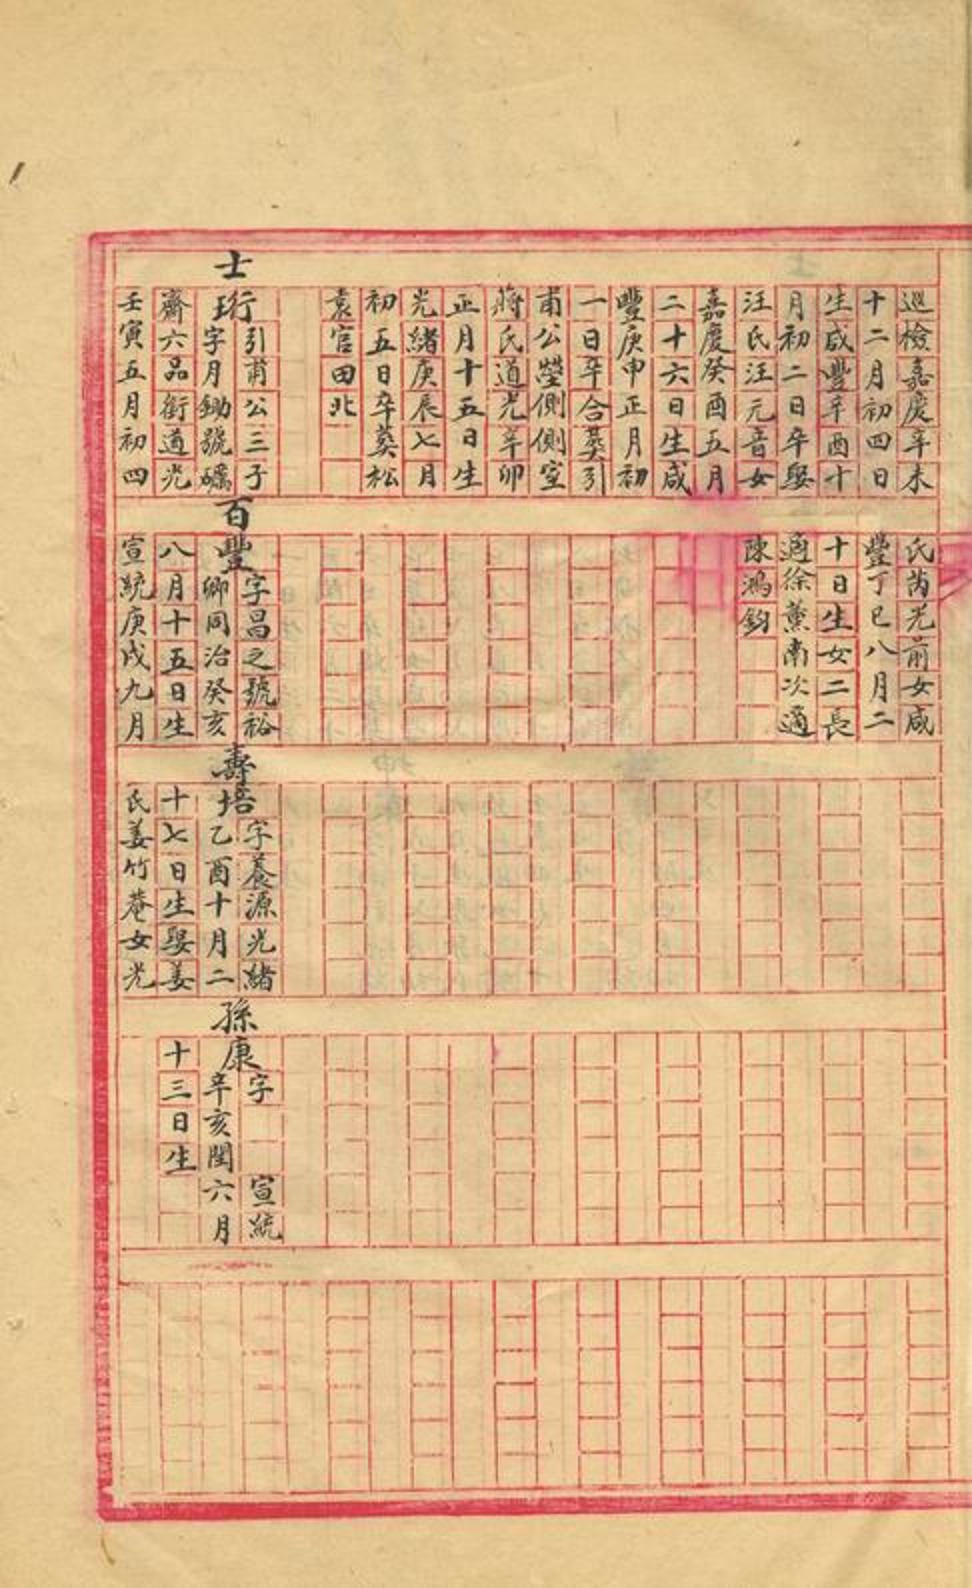 巡檢嘉慶辛未
十二月初四日
生咸豐辛酉十
月初二日卒娶
汪氏汪元音女
嘉慶癸酉五月
二十六日生咸
豐庚申正月初
一日卒合葬引
甫公塋側側室
蔣氏道光辛卯
正月十五日生
光緒庚辰七月
初五日卒葬松
袁官田北
士珩
引甫公三子
字月鋤號礪
齋六品銜道光
壬寅五月初四
氏芮光前女咸
豐丁巳八月二
十日生女二長
適徐薰南次適
陳鴻鈞
百豐
字昌之號裕
卿同治癸亥
八月十五日生
宣統庚戌九月
壽培
字養源光緒
乙酉十月二
十七日生娶姜
氏姜竹菴女光
孫康
字 宣統
辛亥閏六月
十三日生